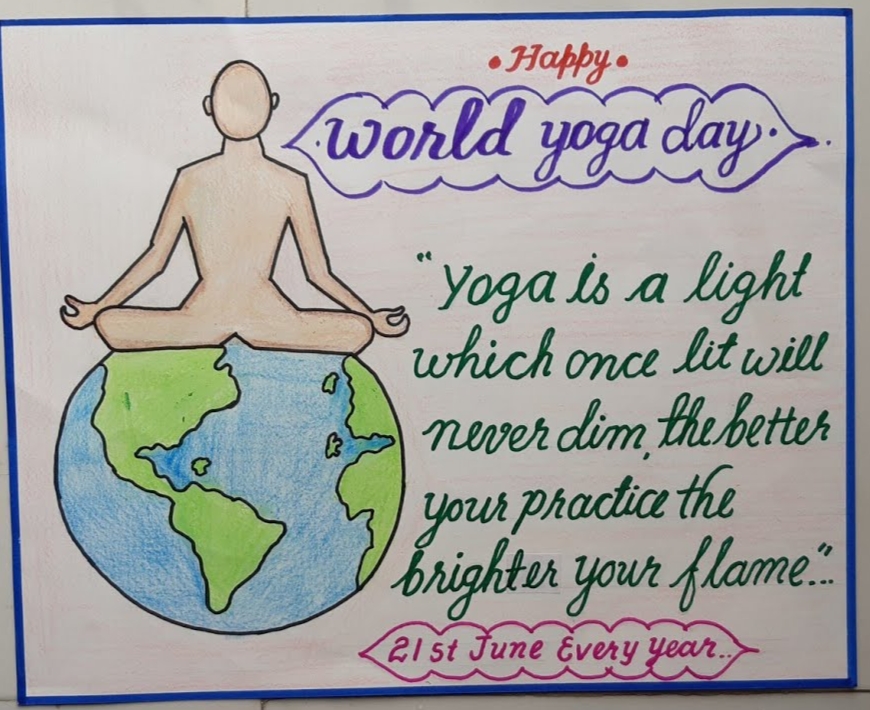 • Happy •
World yoga day
"Yoga is a light
which once lit will
never dim, the better
your practice the
brighter your flame"...
21st June Every year..